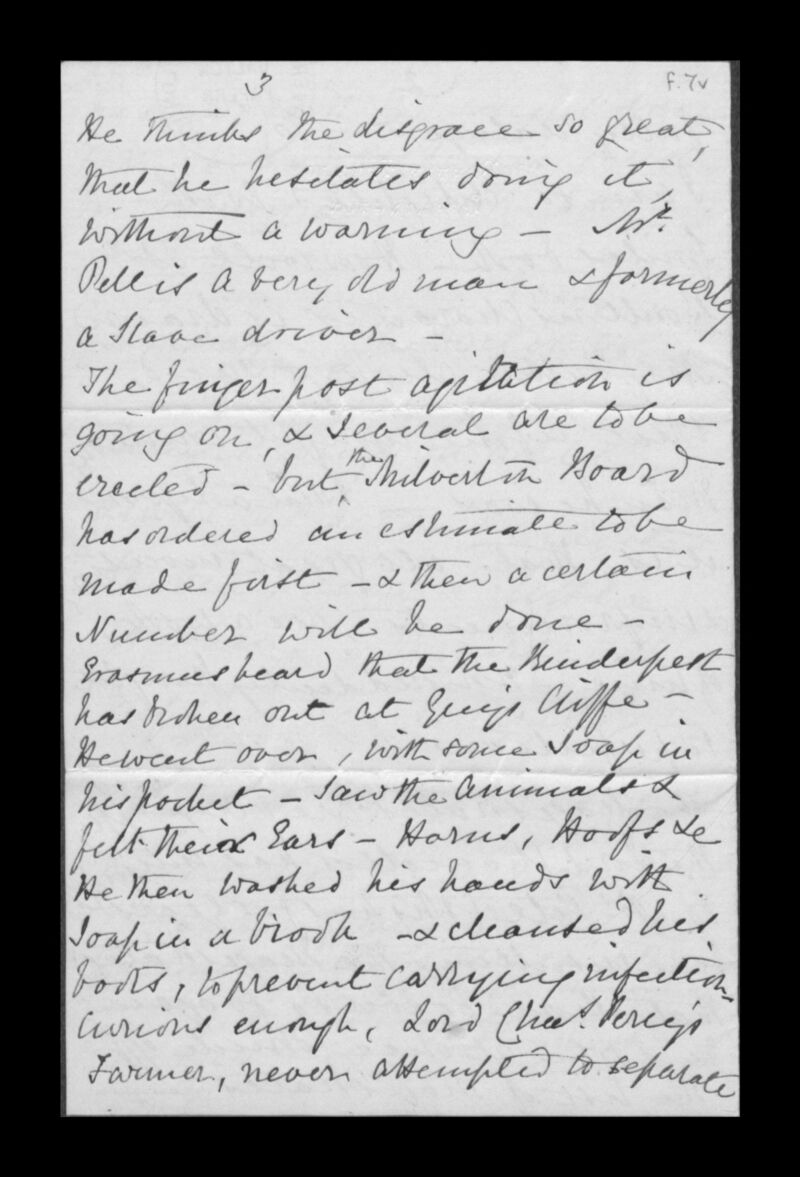 3
f.7v
He thinks the disgrace so great,
that he hesitates doing it,
without a warning – Mr.
Pell is a very old man & formerly
a Slave driver –
The finger post agitation is
going on, & several are to be
erected – but the Milverton Board
has ordered an estimate to be
made first – & then a certain
Number will be done –
Erasmus heard that the Rinderpest
has broken out at Guy's Cliffe –
He went over, with some Soap in
his pocket – Saw the Animals &
felt their Ears – Horns, Hoofs &c
He then washed his hands with
Soap in a brook – & cleansed his
boots, to prevent carrying infection –
Curious enough, Lord Chas. Percy's
Farmer, never attempted to separate